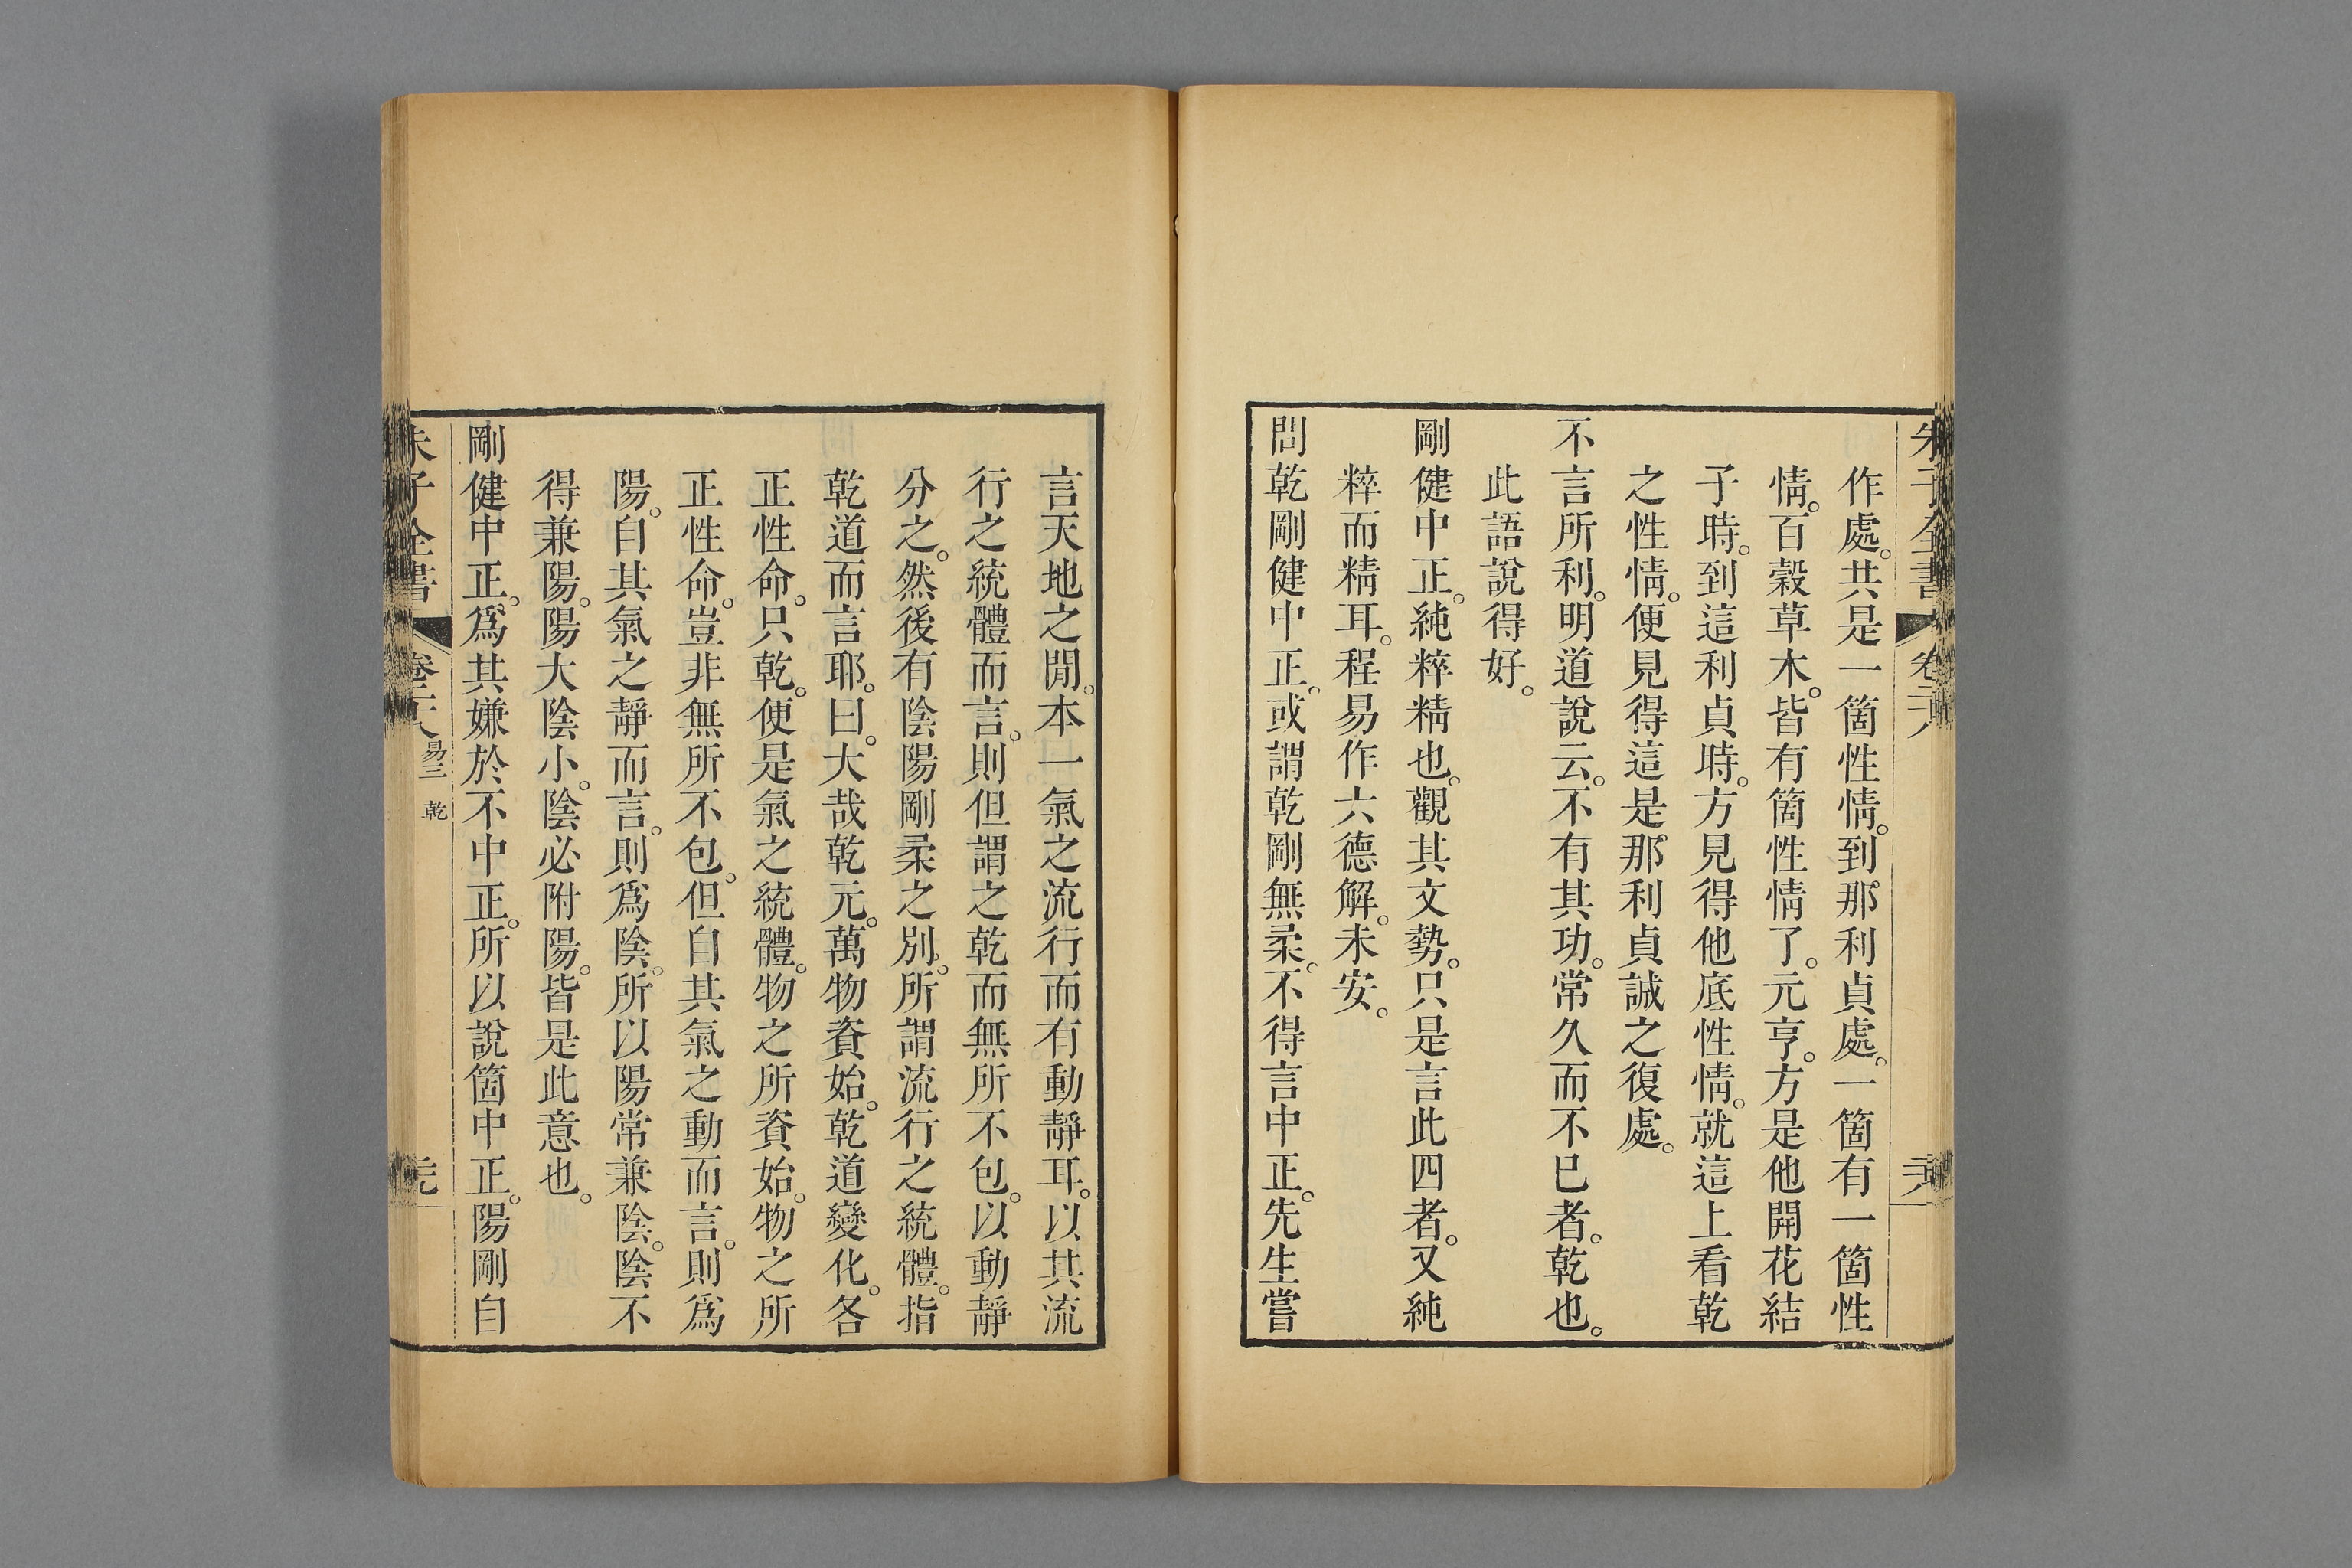 作處。共是一箇性情。到那利貞處。一箇有一箇性
情。百糓草木。皆有箇性情了。元亨。方是他開花結
子時。到這利貞時。方見得他底性情。就這上看乾
之性情。便見得這是那利貞誠之復處。
不言所利。明道說云。不有其功。常久而不已者。乾也。
此語說得好。
剛健中正。純粹精也。觀其文勢。只是言此四者。又純
粹而精耳。程易作六德解。未安。
問乾剛健中正。或謂乾剛無柔。不得言中正。先生嘗
言天地之閒。本一氣之流行而有動靜耳。以其流
行之統體而言。則但謂之乾而無所不包。以動靜
分之。然後有陰陽剛柔之別。所謂流行之統體。指
乾道而言耶。曰。大哉乾元。萬物資始。乾道變化。各
正性命。只乾。便是氣之統體。物之所資始。物之所
正性命。豈非無所不包。但自其氣之動而言。則爲
陽。自其氣之靜而言。則爲陰。所以陽常兼陰。陰不
得兼陽。陽大陰小。陰必附陽。皆是此意也。
剛健中正。爲其嫌於不中正。所以說箇中正。陽剛自
朱子全書
易三 乾